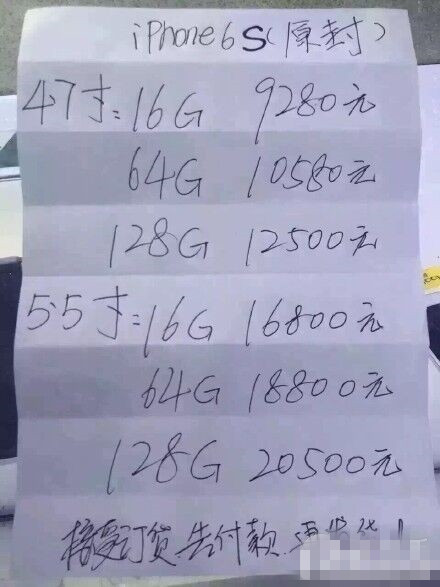 iPhone6S(原封)
4.7寸:16G 9280元
64G 10580元
128G 12500元
5.5寸:16G 16800元
64G 18800元
128G 20500元
接受订货 先付款 再发货!